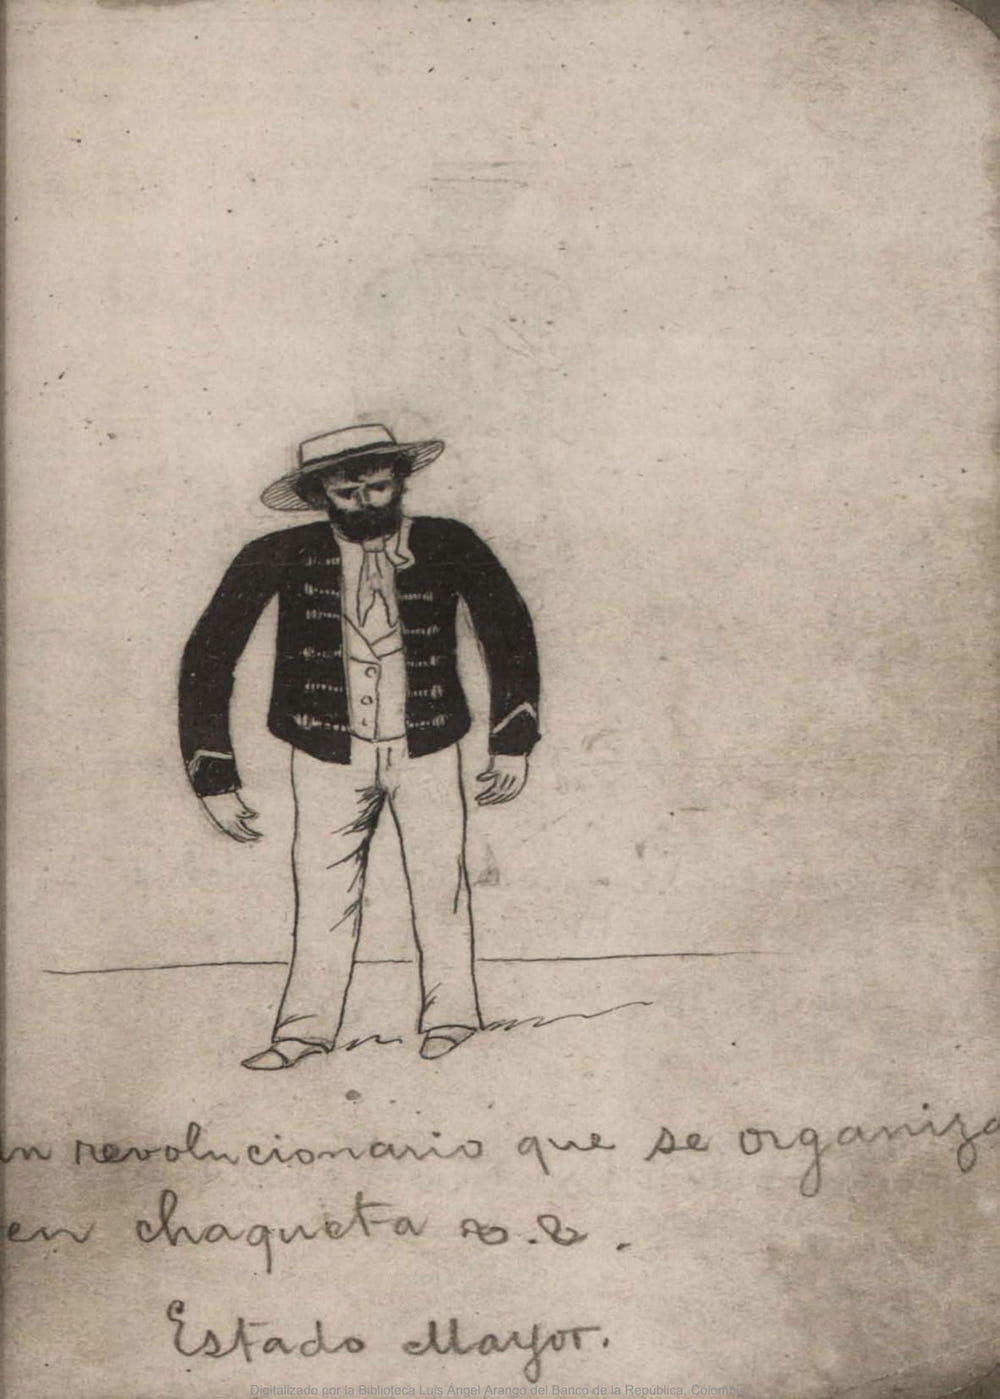 un revolucionario que se organiza
en chaqueta
Estado Mayor.
Digitalizado por la Biblioteca Luis Ángel Arango del Banco de la República, Colombia